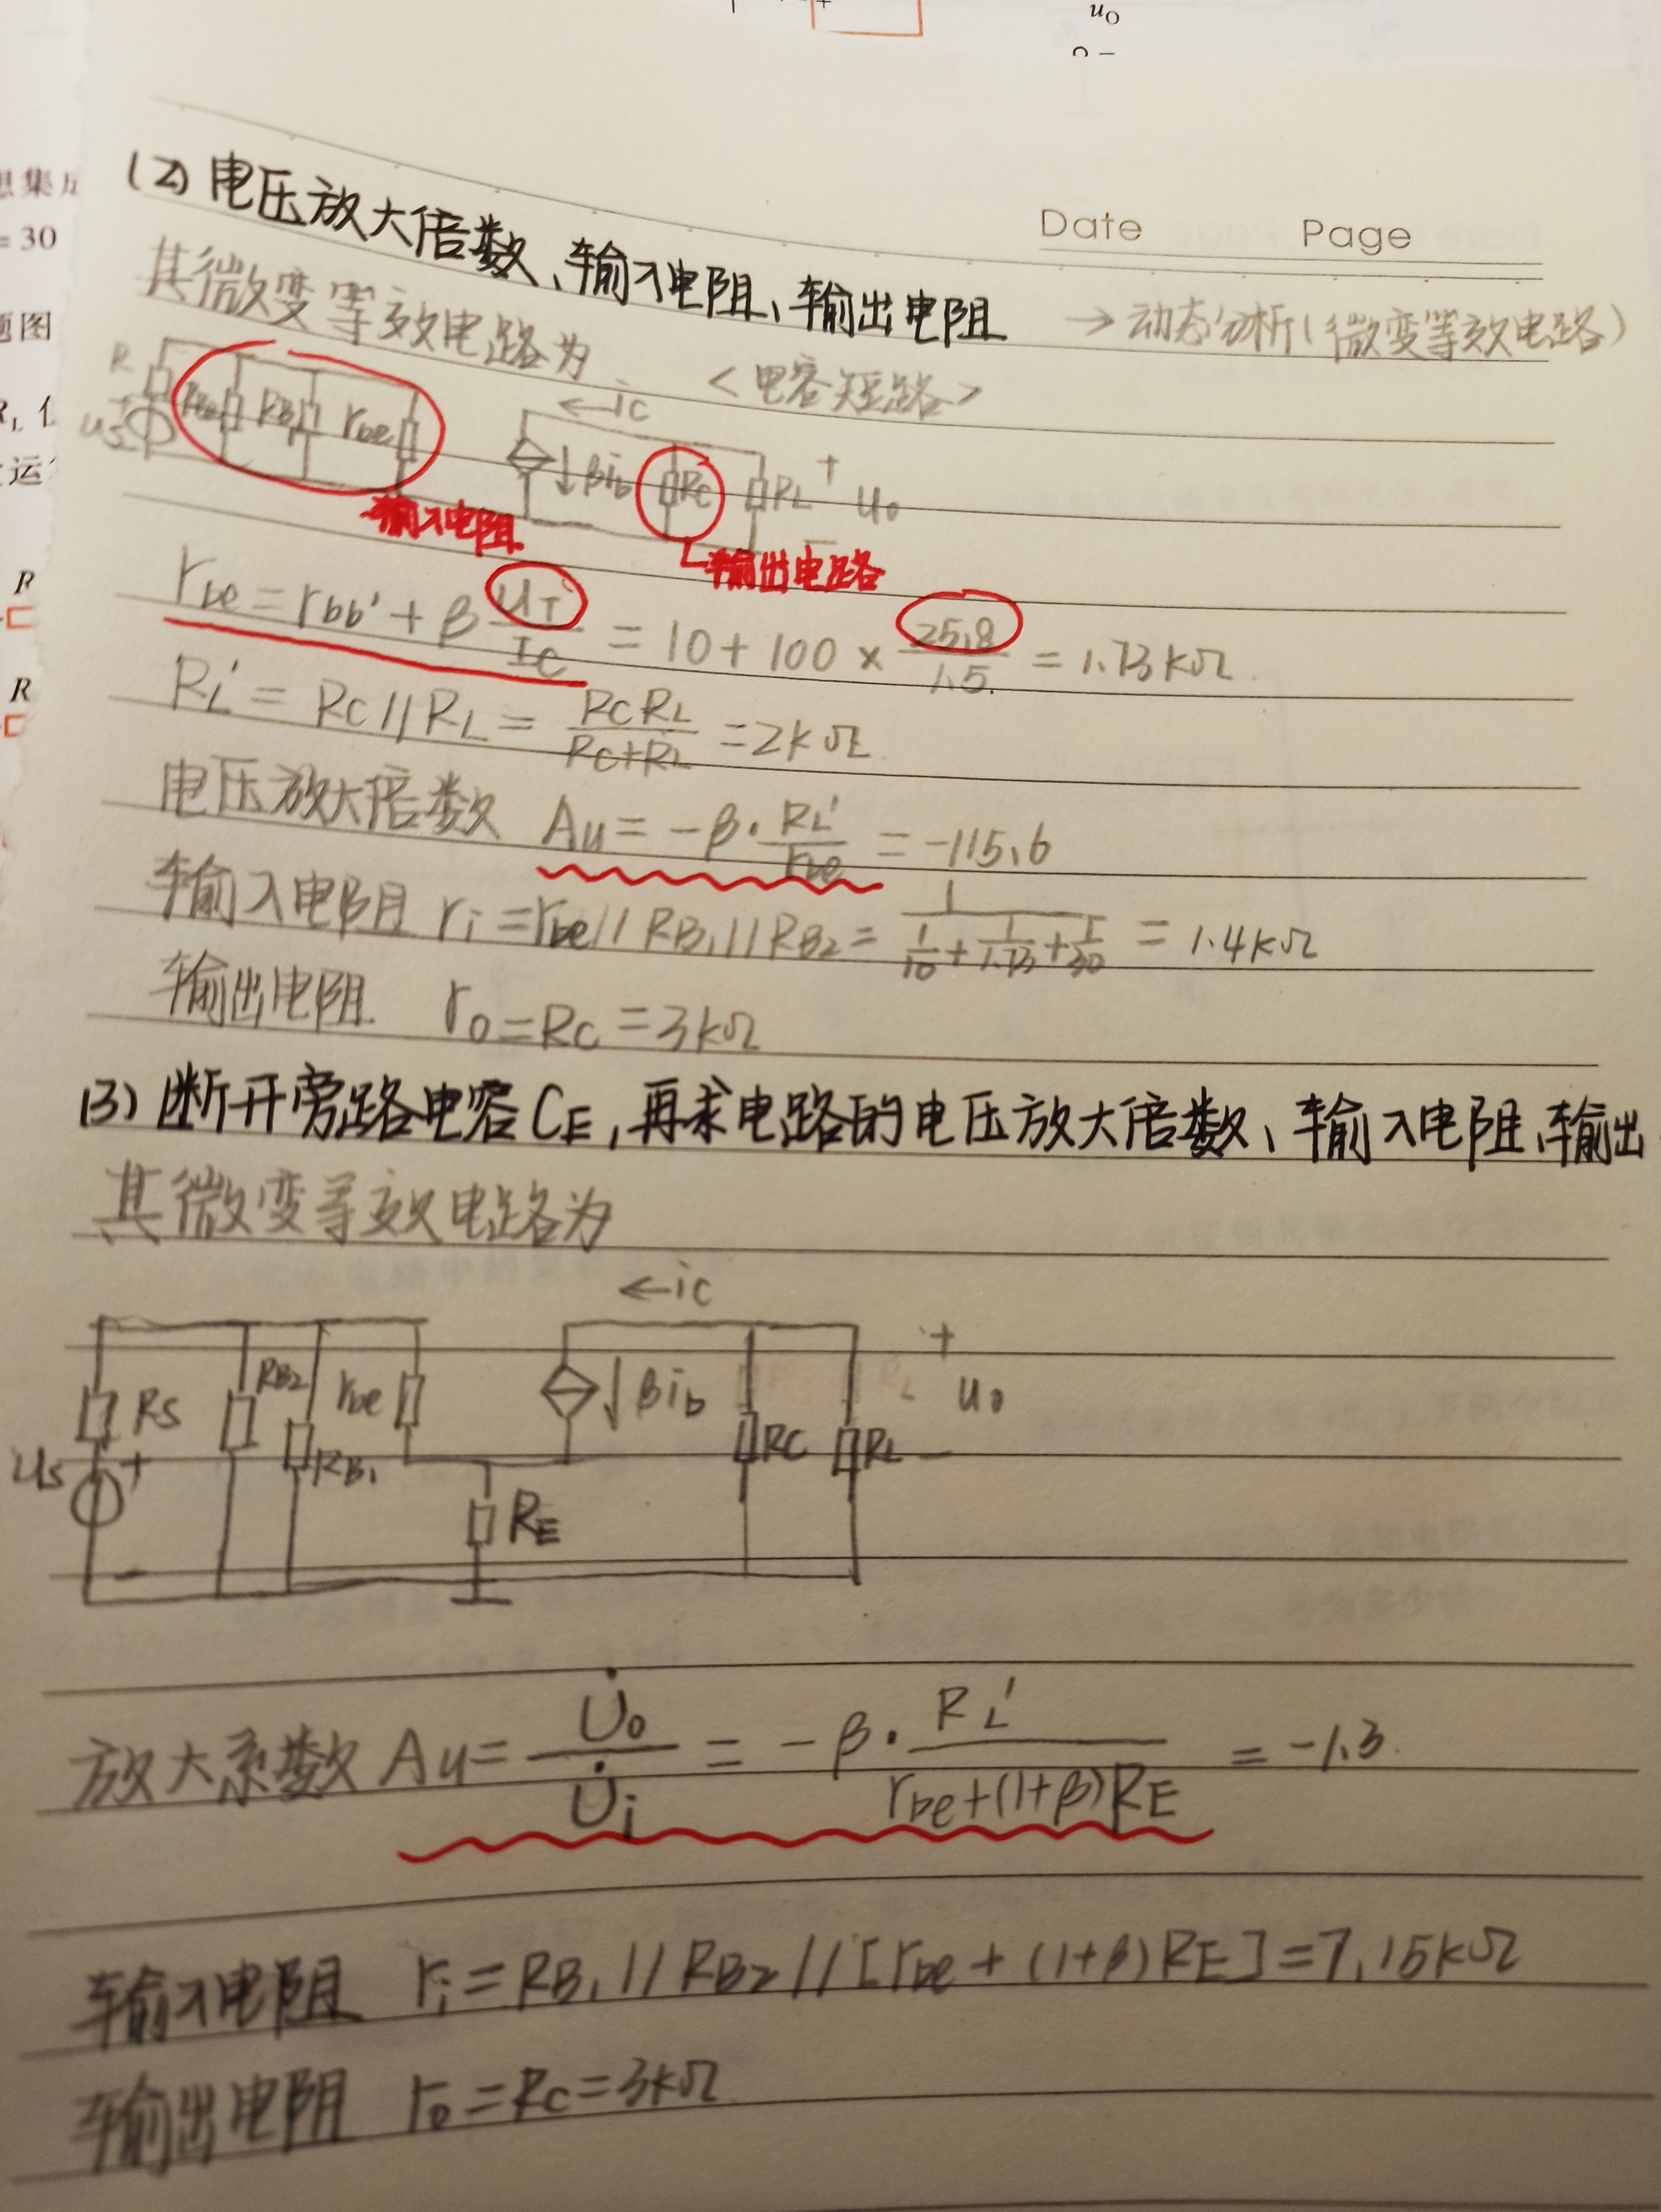 u_O
−
想集成
= 30
题图
R_L
运
R
R
Date Page
(2) 电压放大倍数、输入电阻、输出电阻
→ 动态分析(微变等效电路)
其微变等效电路为 <电容短路>
R
us
RB
rbe
←ic
↓βib
RC
RL
+
uo
−
输入电阻
输出电路
rbe = rbb' + β UT/IC = 10 + 100 × 25.8/1.5 = 1.73kΩ
RL' = RC // RL = RC RL/(RC+RL) = 2kΩ
电压放大倍数 Au = -β· RL'/rbe = -115.6
输入电阻 ri = rbe // RB1 // RB2 = 1/(1/10 + 1/1.73 + 1/30) = 1.4kΩ
输出电阻 ro = RC = 3kΩ
(3) 断开旁路电容CE,再求电路的电压放大倍数、输入电阻、输出
其微变等效电路为
←ic
RS
RB2
rbe
↓βib
+
uo
−
us
+
RB1
RC
RL
RE
−
放大系数 Au = U̇o/U̇i = -β· RL'/(rbe+(1+β)RE) = -1.3
输入电阻 ri = RB1 // RB2 // [rbe + (1+β)RE] = 7.15kΩ
输出电阻 ro = RC = 3kΩ